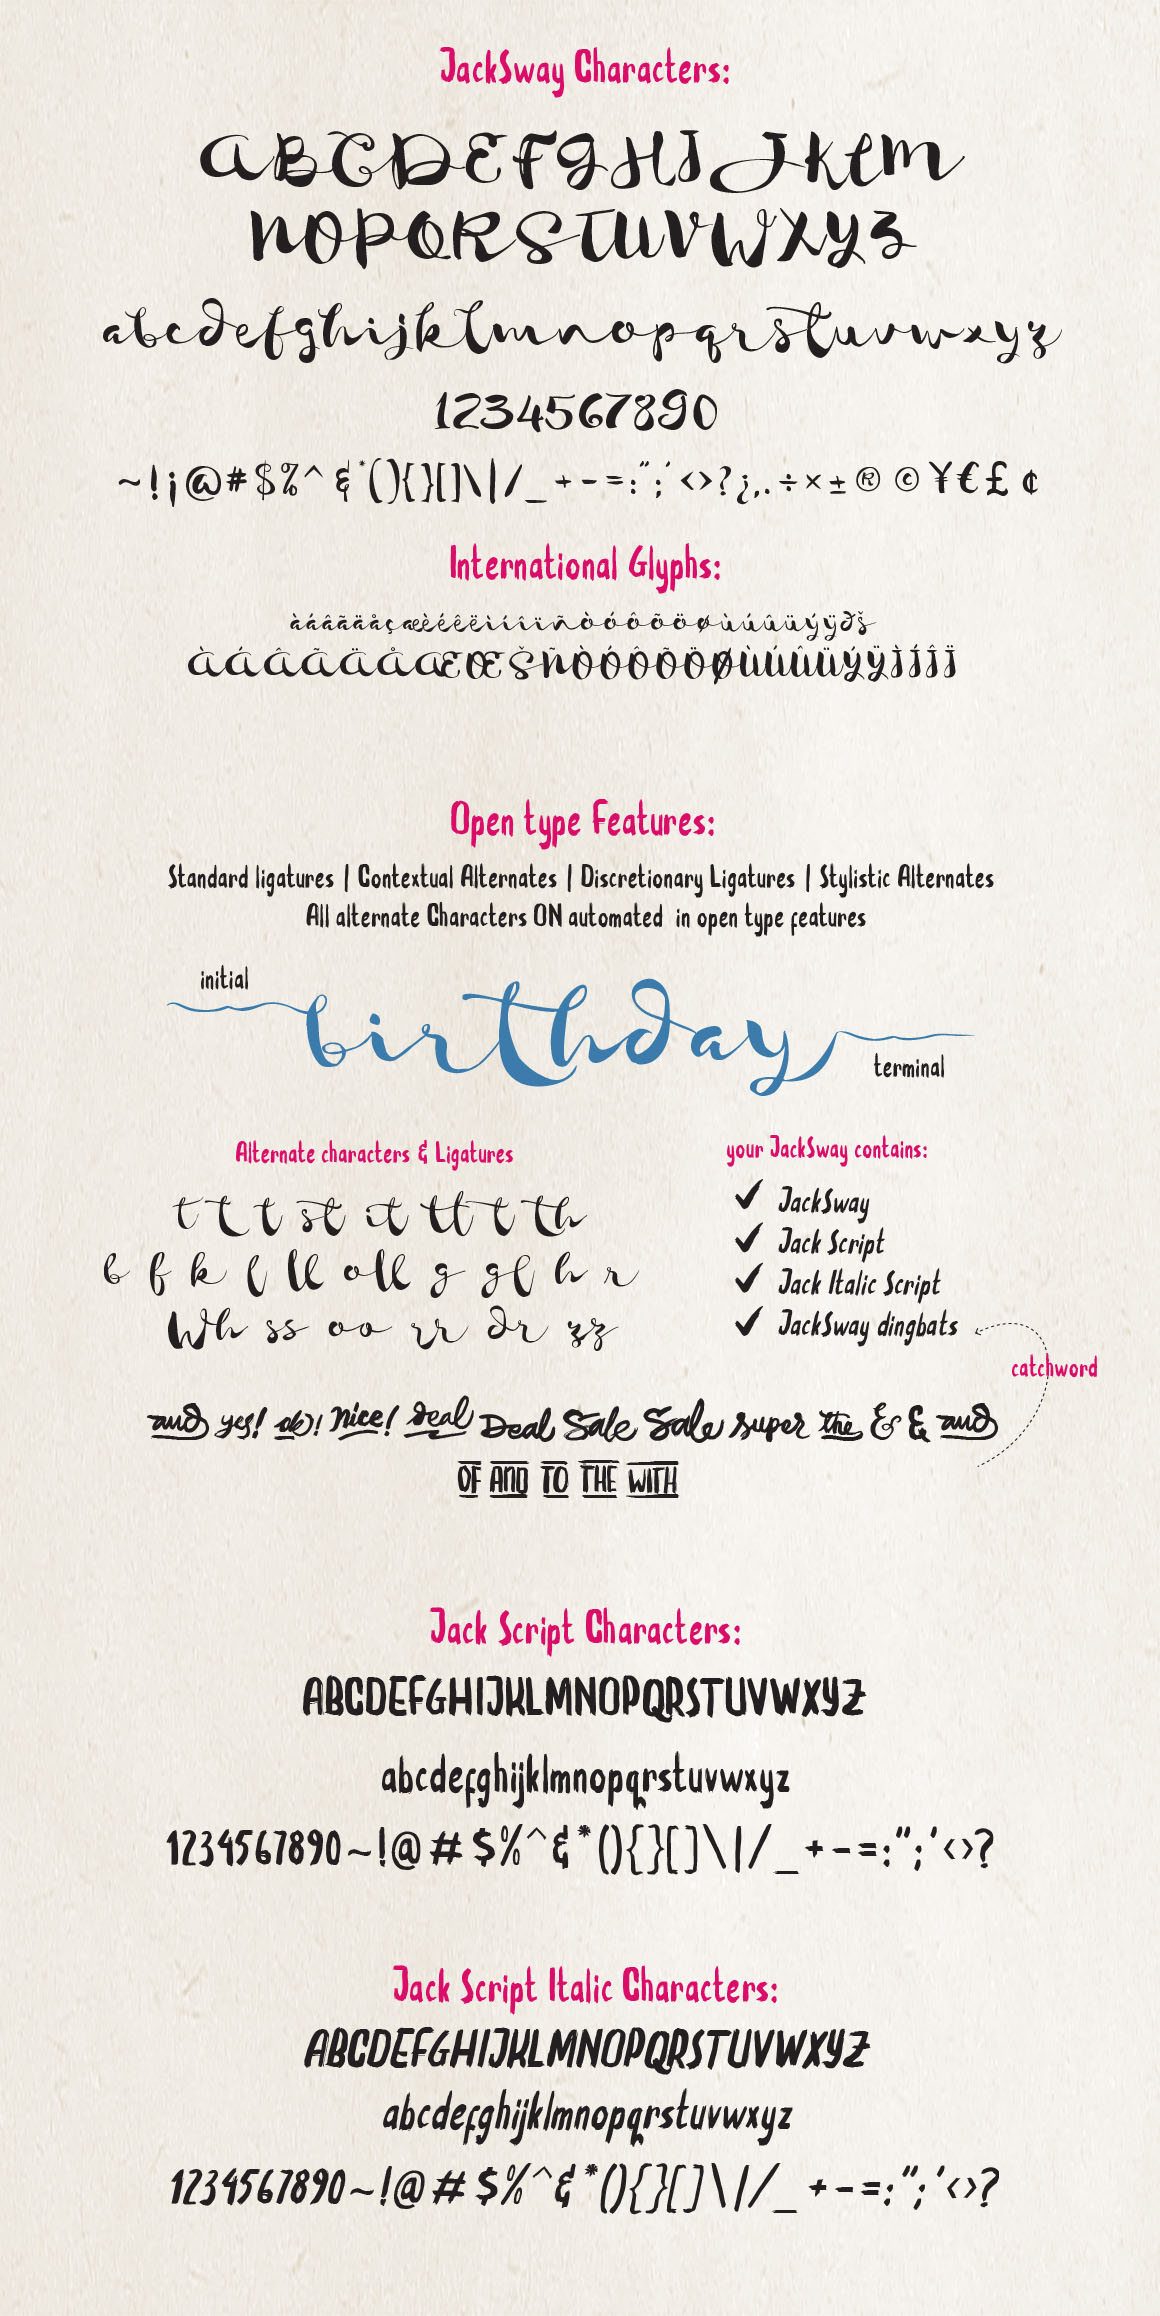 JackSway Characters:
ABCDEFGHIJKLM
NOPQRSTUVWXYZ
abcdefghijklmnopqrstuvwxyz
1234567890
~!¡@#$%^&*(){}[]\|/_+-=:";'<>?¿,.÷×±®©¥€£¢
International Glyphs:
àáâãäåçæèéêëìíîïñòóôõöøùúûüýÿðš
ÀÁÂÃÄÅÆŒŠÑÒÓÔÕÖØÙÚÛÜÝŸÌÍÎÏ
Open type Features:
Standard ligatures | Contextual Alternates | Discretionary Ligatures | Stylistic Alternates
All alternate Characters ON automated in open type features
initial
birthday
terminal
Alternate characters & Ligatures
t t t st it tt t th
b f k l ll oll g gl h r
Wh ss oo rr dr zz
your JackSway contains:
JackSway
Jack Script
Jack Italic Script
JackSway dingbats
catchword
and yes! ok! nice! Deal Deal Sale Sale super the & & and
OF AND TO THE WITH
Jack Script Characters:
ABCDEFGHIJKLMNOPQRSTUVWXYZ
abcdefghijklmnopqrstuvwxyz
1234567890~!@#$%^&*(){}[]\|/_+-=:";'<>?
Jack Script Italic Characters:
ABCDEFGHIJKLMNOPQRSTUVWXYZ
abcdefghijklmnopqrstuvwxyz
1234567890~!@#$%^&*(){}[]\|/_+-=:";'<>?